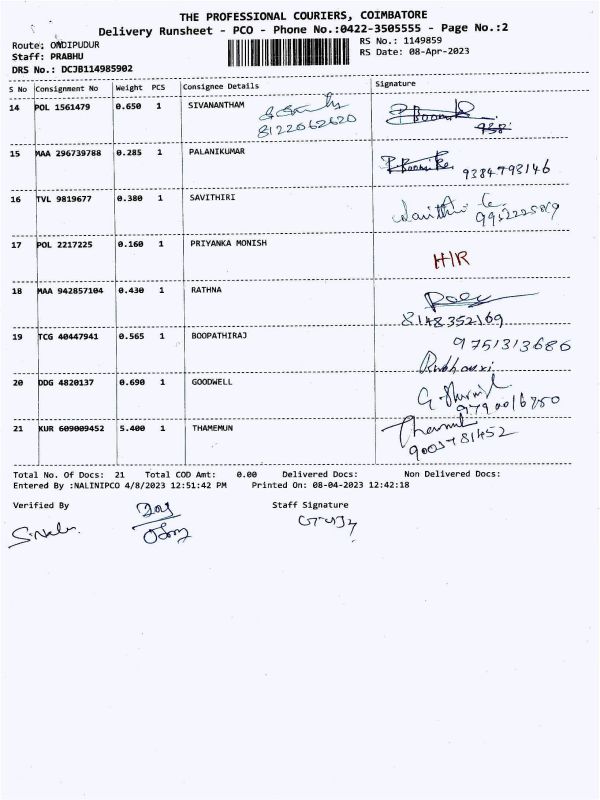 THE PROFESSIONAL COURIERS, COIMBATORE
Delivery Runsheet - PCO - Phone No.:0422-3505555 - Page No.:2
Route: ONDIPUDUR
RS No.: 1149859
Staff: PRABHU
RS Date: 08-Apr-2023
DRS No.: DCJB114985902
S No Consignment No Weight PCS Consignee Details Signature
14 POL 1561479 0.650 1 SIVANANTHAM
8122062620
15 MAA 296739788 0.285 1 PALANIKUMAR
9384793146
16 TVL 9819677 0.380 1 SAVITHIRI
17 POL 2217225 0.160 1 PRIYANKA MONISH
H/R
18 MAA 942857104 0.430 1 RATHNA
8148352169
19 TCG 40447941 0.565 1 BOOPATHIRAJ
9751313686
20 DDG 4820137 0.690 1 GOODWELL
21 KUR 609009452 5.400 1 THAMEMUN
Total No. Of Docs: 21 Total COD Amt: 0.00 Delivered Docs: Non Delivered Docs:
Entered By :NALINIPCO 4/8/2023 12:51:42 PM Printed On: 08-04-2023 12:42:18
Verified By Staff Signature